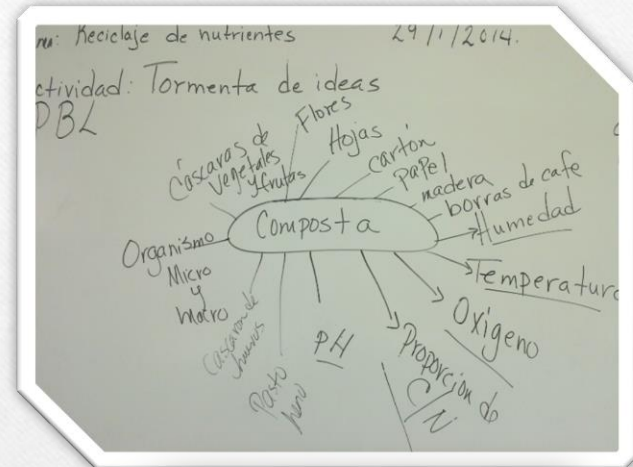 Reciclaje de nutrientes 29/1/2014.
ctividad: Tormenta de ideas
PBL
Cáscaras de
vegetales
y frutas
Flores
Hojas
cartón
papel
madera
borras de cafe
Humedad
Temperatura
Oxigeno
Proporción de
C/N
PH
Pasto
heno
Cascaron de
huevos
Organismo
Micro
y
Macro
Composta